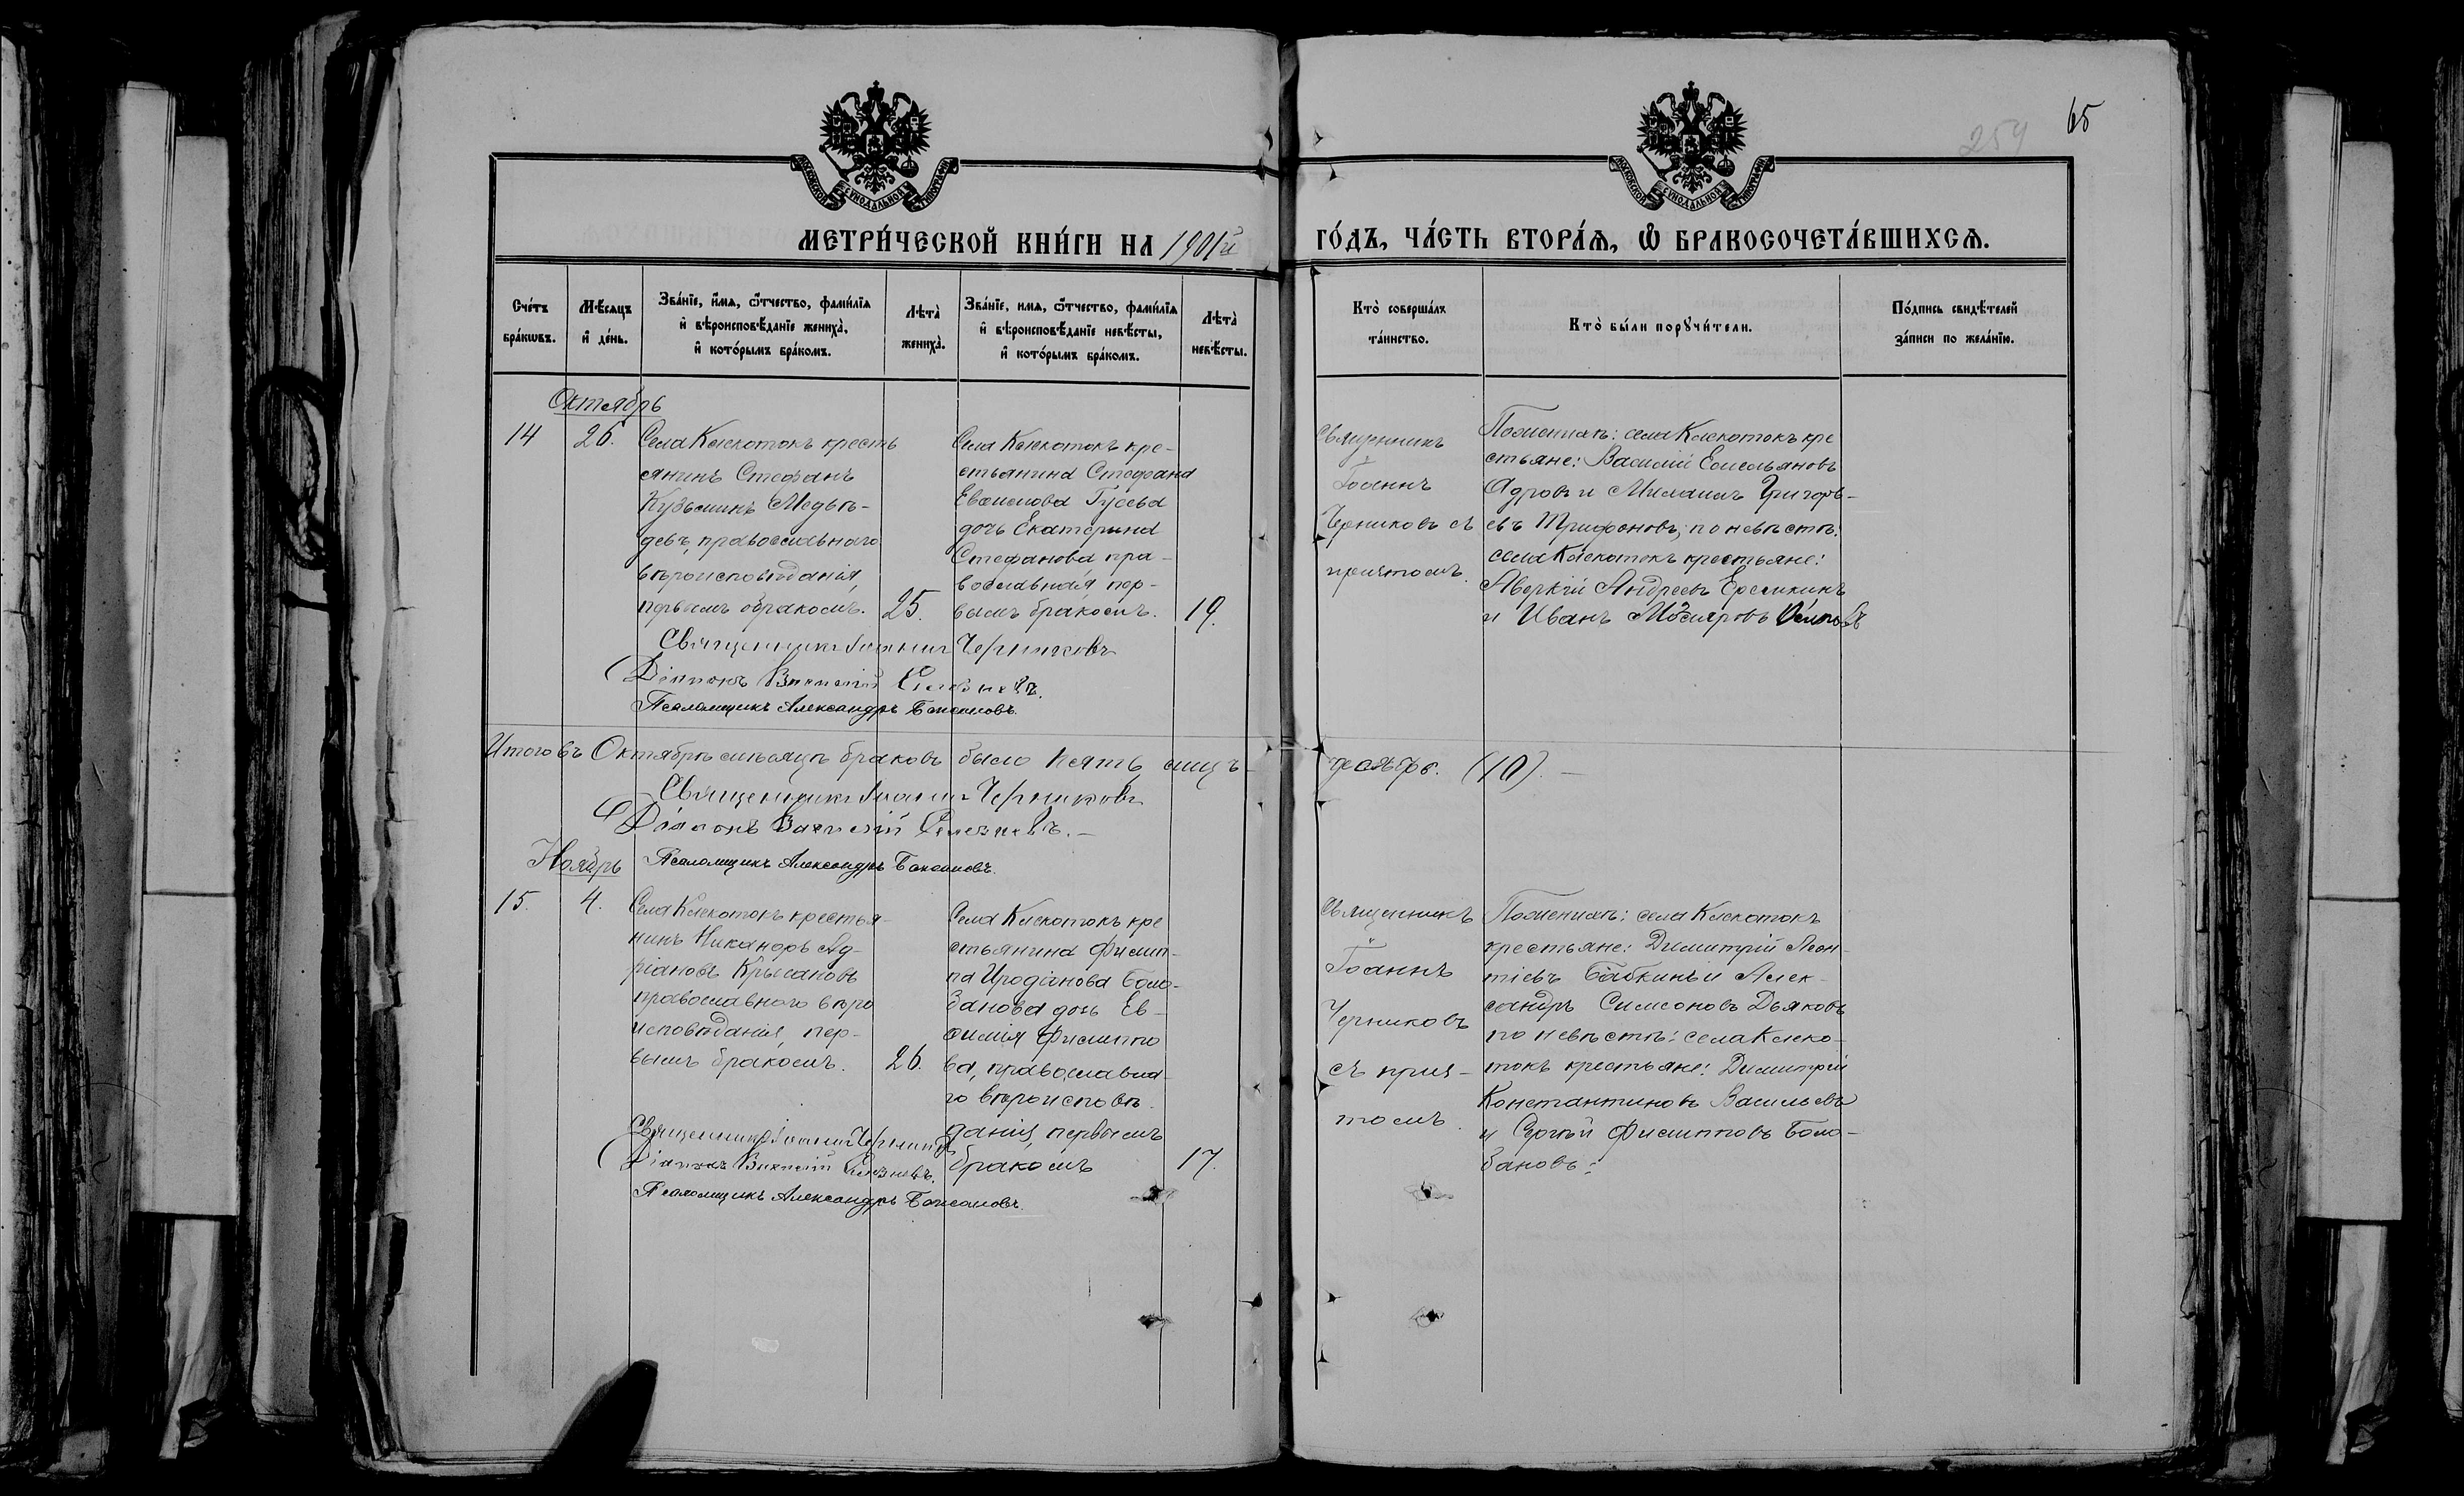 65
259
МОСКОВСКОЙ СУНОДАЛЬНОЙ ТИПОГРАФІИ
МОСКОВСКОЙ СУНОДАЛЬНОЙ ТИПОГРАФІИ
МЕТРИ́ЧЕСКОЙ КНИ́ГИ НА 1901й
ГО́ДЪ, ЧА́СТЬ ВТОРА́Ѧ, Ѽ БРАКОСОЧЕТА́ВШИХСѦ.
Сче́тъ
бра́кѡвъ.
Мѣ́сяцъ
и҆ де́нь.
Зва́нїе, и҆́мѧ, ѻ҆́тчество, фами́лїѧ
и҆ вѣроисповѣ́данїе жениха̀,
и҆ кото́рымъ бра́комъ.
Лѣта̀
жениха̀.
Зва́нїе, имѧ, ѻ҆́тчество, фами́лїѧ
и҆ вѣроисповѣ́данїе невѣ́сты,
и҆ кото́рымъ бра́комъ.
Лѣта̀
невѣ́сты.
Кто̀ соверша́лъ
та́инство.
Кто̀ бы́ли порꙋчи́тели.
По́дпись свидѣ́телей
за́писи по жела́нїю.
Октябрь
14
26.
Села Клекотокъ кресть
янинъ Стефанъ
Кузьминъ Медвѣ-
девъ, православнаго
вѣроисповѣданія,
первымъ бракомъ.
25.
Села Клекотокъ кре-
стьянина Стефана
Евѳимова Гусева
дочь Екатерина
Стефанова пра-
вославная, пер-
вымъ бракомъ.
19.
Священникъ
Іоаннъ
Черниковъ съ
причтомъ.
По женихѣ: села Клекотокъ кре
стьяне: Василій Емельяновъ
Адровъ и Михаилъ Григорь-
евъ Трифоновъ; по невѣстѣ:
села Клекотокъ крестьяне:
Аверкій Андреевъ Еремкинъ
и Иванъ
Священникъ Іоаннъ Черниковъ
Діаконъ Василій Селезневъ.
Псаломщикъ Александръ Баженовъ.
Итого въ Октябрѣ мѣсяцѣ браковъ было пять лицъ
десять. (10). —
Священникъ Іоаннъ Черниковъ
Діаконъ Василій Селезневъ. —
Псаломщикъ Александръ Баженовъ.
Ноябрь
15.
4.
Села Клекотокъ крестья-
нинъ Никаноръ Ад-
ріановъ Крысановъ
православнаго вѣро
исповѣданія, пер-
вымъ бракомъ.
26.
Села Клекотокъ кре
стьянина Филип-
па Иродіонова Боло-
занова дочь Ев-
ѳимія Филиппо
ва, православна-
го вѣроисповѣ-
данія, первымъ
бракомъ
17.
Священникъ
Іоаннъ
Черниковъ
съ прич-
томъ.
По женихѣ: села Клекотокъ
крестьяне: Димитрій Леон-
тіевъ Бабкинъ и Алек-
сандръ Симеоновъ Дьяковъ
по невѣстѣ: села Клеко-
токъ крестьяне: Димитрій
Константиновъ Васильевъ
и Сергѣй Филипповъ Боло-
зановъ.
Священникъ Іоаннъ Черниковъ
Діаконъ Василій Селезневъ.
Псаломщикъ Александръ Баженовъ.